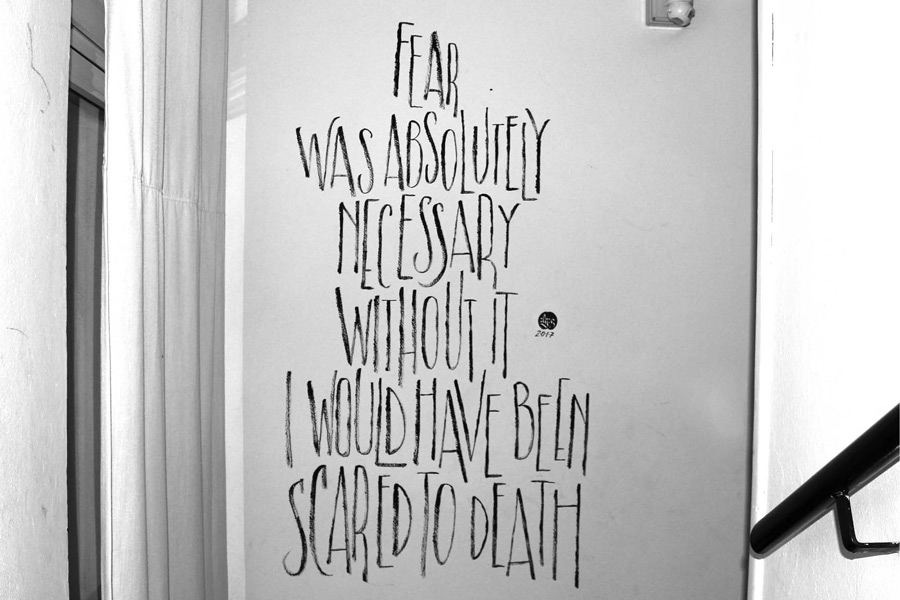 FEAR
WAS ABSOLUTELY
NECESSARY
WITHOUT IT
2017
I WOULD HAVE BEEN
SCARED TO DEATH